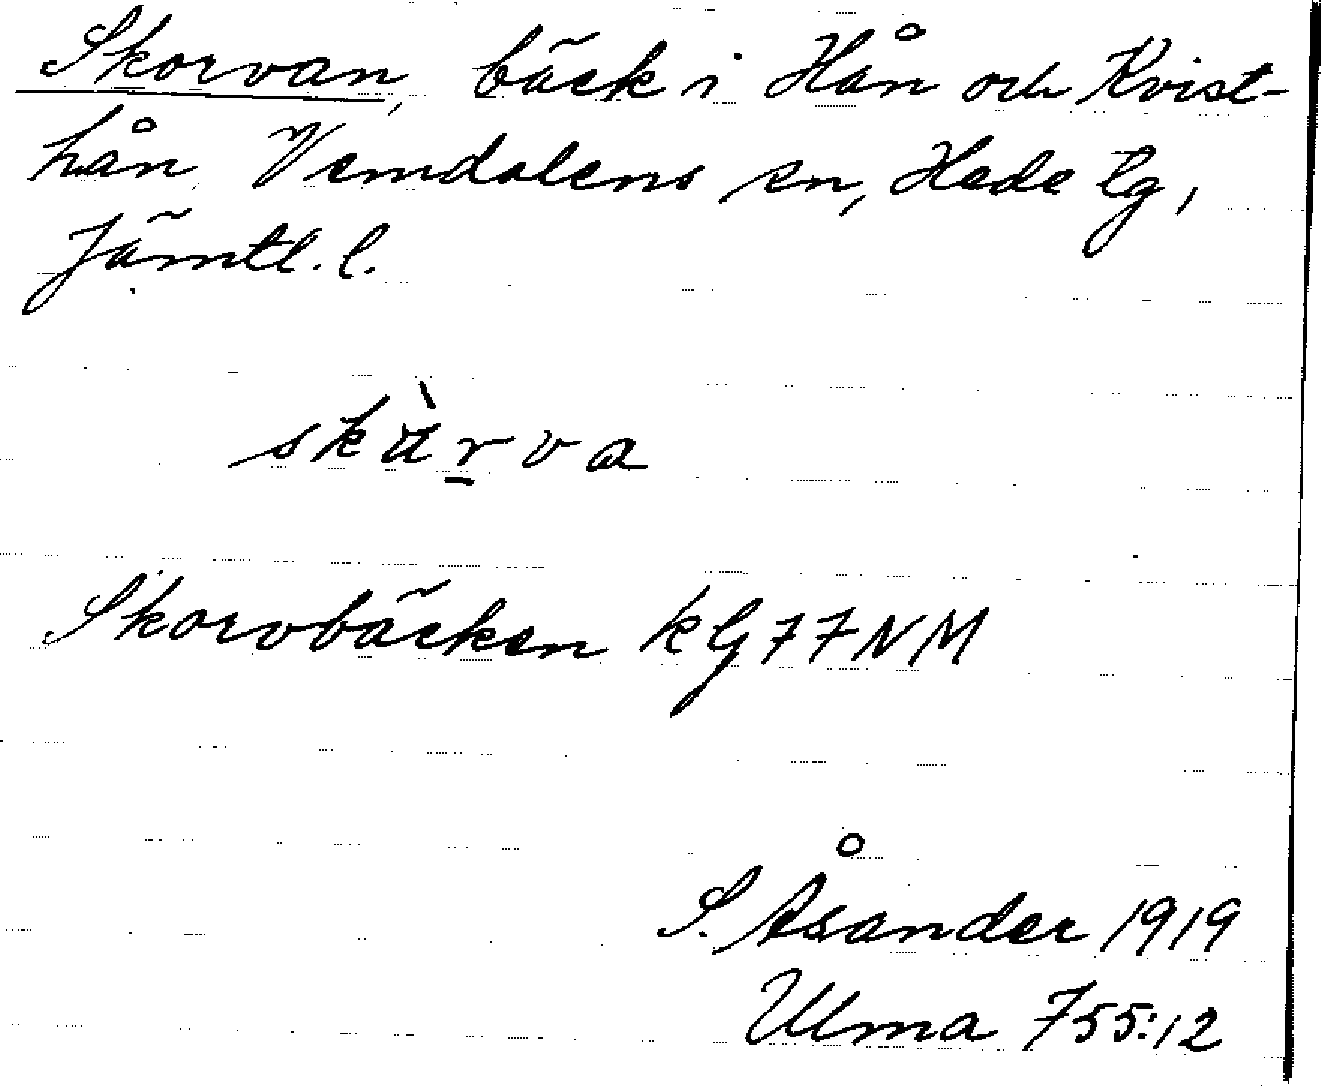 Skorvan, bäck i Hån och Kvist-
hån, Vemdalens sn, Hede tg,
Jämtl. l.
skàr̲va
Skorvbäcken kG77NM
S. Åsander 1919
Ulma 755:12